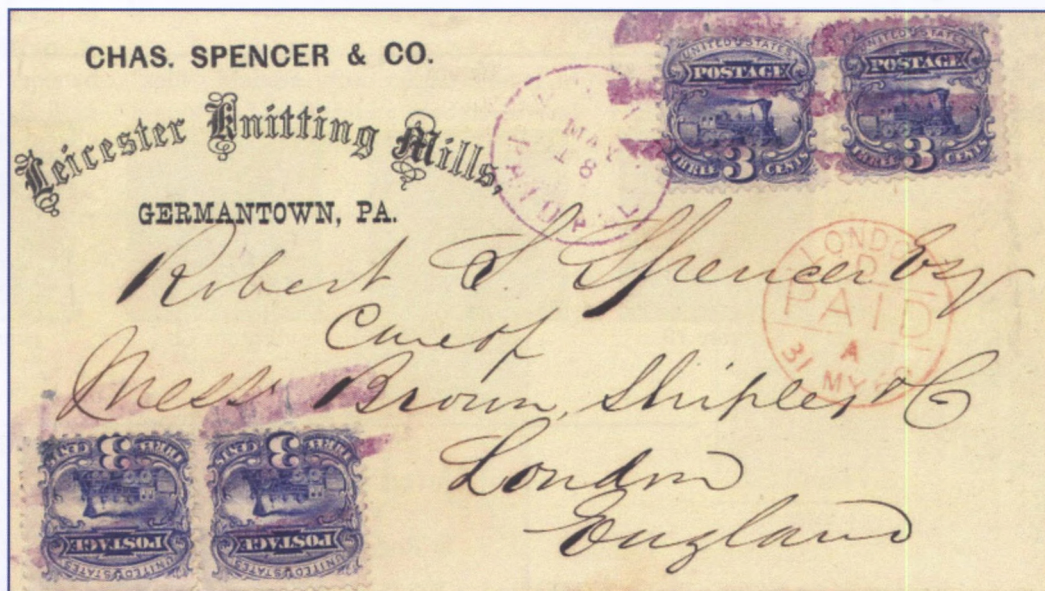 CHAS. SPENCER & CO.
Leicester Knitting Mills,
GERMANTOWN, PA.
UNITED STATES
POSTAGE
THREE 3 CENTS
UNITED STATES
POSTAGE
THREE 3 CENTS
MAY
18
PAID ALL
LONDON
PAID
A
31 MY
Robert S. Spencer Esq
Care of
Mess Brown, Shipley & Co
London
England
UNITED STATES
POSTAGE
THREE 3 CENTS
UNITED STATES
POSTAGE
THREE 3 CENTS